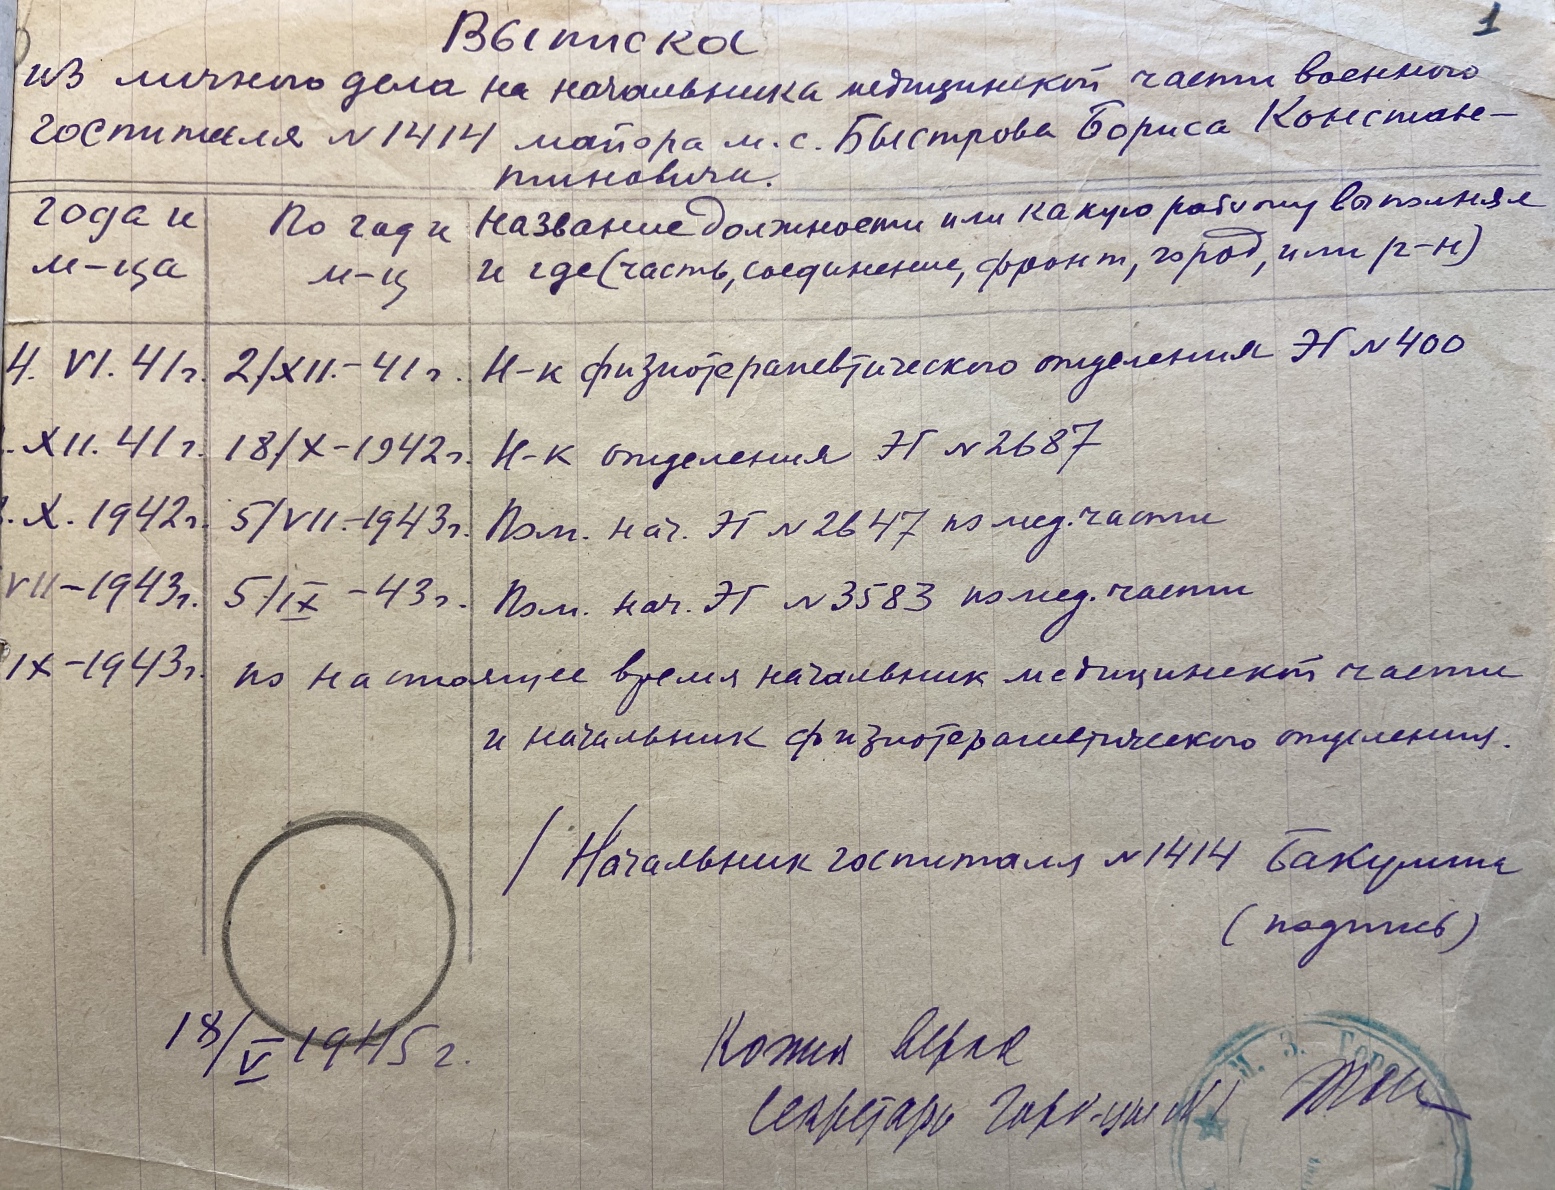 1
Выписка
из личного дела на начальника медицинской части военного
госпиталя №1414 майора м.с. Быстрова Бориса Констан-
тиновича.
года и м-ца
По год и м-ц
Название должности или какую работу выполнял
и где (часть, соединение, фронт, город, или р-н)
4. VI. 41г. 2/XII.-41г. Н-к физиотерапевтического отделения ЭГ №400
.XII. 41г. 18/X-1942г. Н-к отделения ЭГ №2687
.X. 1942г. 5/VII.-1943г. Пом. нач. ЭГ №2647 по мед. части
VII-1943г. 5/IX-43г. Пом. нач. ЭГ №3583 по мед. части
IX-1943г. по настоящее время начальник медицинской части
и начальник физиотерапевтического отделения.
/ Начальник госпиталя №1414 Бакулина
(подпись)
18/V 1945г.
Копия верна
Секретарь
М. З. Горь